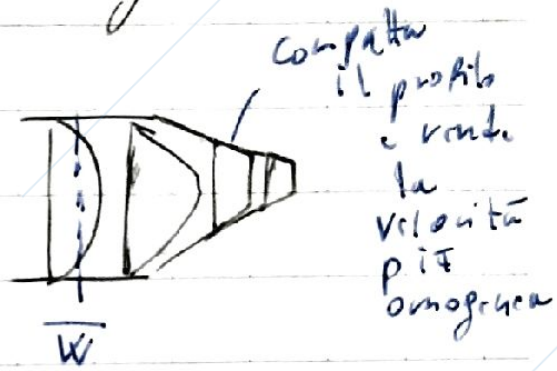 compatta
il profilo
e rende
la
velocità
più
omogenea
W